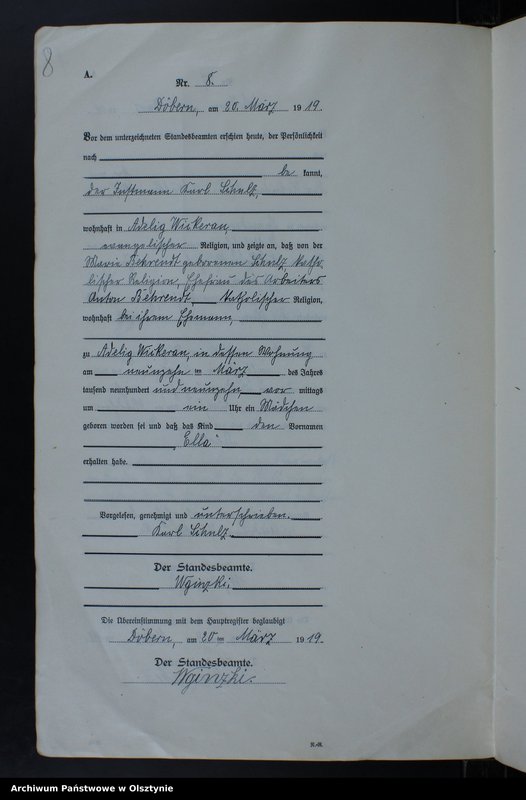 8
A.
Nr. 8.
Döbern, am 20. März 1919.
Vor dem unterzeichneten Standesbeamten erschien heute, der Persönlichkeit
nach
be kannt,
der Instmann Karl Schulz,
wohnhaft in Adelig Wickerau,
evangelischer Religion, und zeigte an, daß von der
Marie Behrendt geborenen Schulz katho-
lischer Religion, Ehefrau des Arbeiters
Anton Behrendt, katholischer Religion,
wohnhaft bei ihrem Ehemann,
zu Adelig Wickerau, in dessen Wohnung
am neunzehn ten März des Jahres
tausend neunhundert und neunzehn vor mittags
um ein Uhr ein Mädchen
geboren worden sei und daß das Kind den Vornamen
„Ella“
erhalten habe.
Vorgelesen, genehmigt und unterschrieben.
Karl Schulz.
Der Standesbeamte.
Die Übereinstimmung mit dem Hauptregister beglaubigt
Döbern, am 20ten März 1919.
Der Standesbeamte.
Archiwum Państwowe w Olsztynie